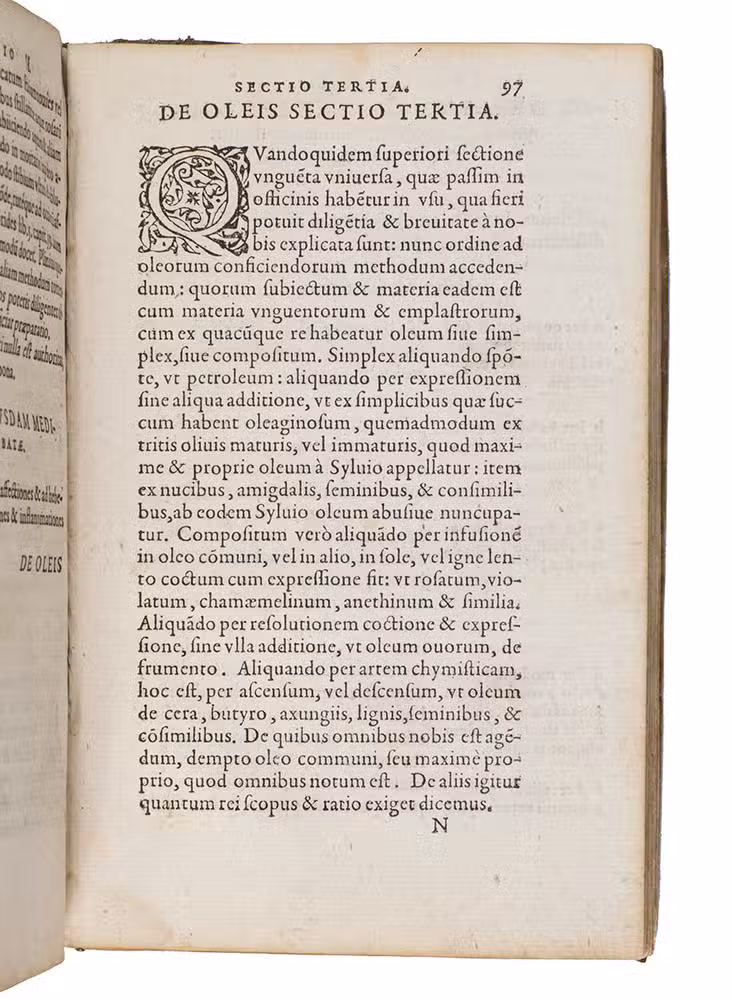 catum
DE OLEIS
SECTIO TERTIA. 97
DE OLEIS SECTIO TERTIA.
QVandoquidem ſuperiori ſectione
vnguẽta vniuerſa, quæ paſſim in
officinis habẽtur in vſu, qua fieri
potuit diligẽtia & breuitate à no-
bis explicata ſunt: nunc ordine ad
oleorum conficiendorum methodum acceden-
dum: quorum ſubiectum & materia eadem eſt
cum materia vnguentorum & emplaſtrorum,
cùm ex quacũque re habeatur oleum ſiue ſim-
plex, ſiue compoſitum. Simplex aliquando ſpõ-
te, vt petroleum: aliquando per expreſſionem
ſine aliqua additione, vt ex ſimplicibus quæ ſuc-
cum habent oleaginoſum, quemadmodum ex
tritis oliuis maturis, vel immaturis, quod maxi-
me & proprie oleum à Syluio appellatur: item
ex nucibus, amigdalis, ſeminibus, & conſimili-
bus, ab eodem Syluio oleum abuſiue nuncupa-
tur. Compoſitum verò aliquãdo per infuſionẽ
in oleo cõmuni, vel in alio, in ſole, vel igne len-
to coctum cum expreſſione fit: vt roſatum, vio-
latum, chamæmelinum, anethinum & ſimilia.
Aliquãdo per reſolutionem coctione & expreſ-
ſione, ſine vlla additione, vt oleum ouorum, de
frumento. Aliquando per artem chymiſticam,
hoc eſt, per aſcenſum, vel deſcenſum, vt oleum
de cera, butyro, axungiis, lignis, ſeminibus, &
cõſimilibus. De quibus omnibus nobis eſt agẽ-
dum, dempto oleo communi, ſeu maximè pro-
prio, quod omnibus notum eſt. De aliis igitur
quantum rei ſcopus & ratio exiget dicemus.
N